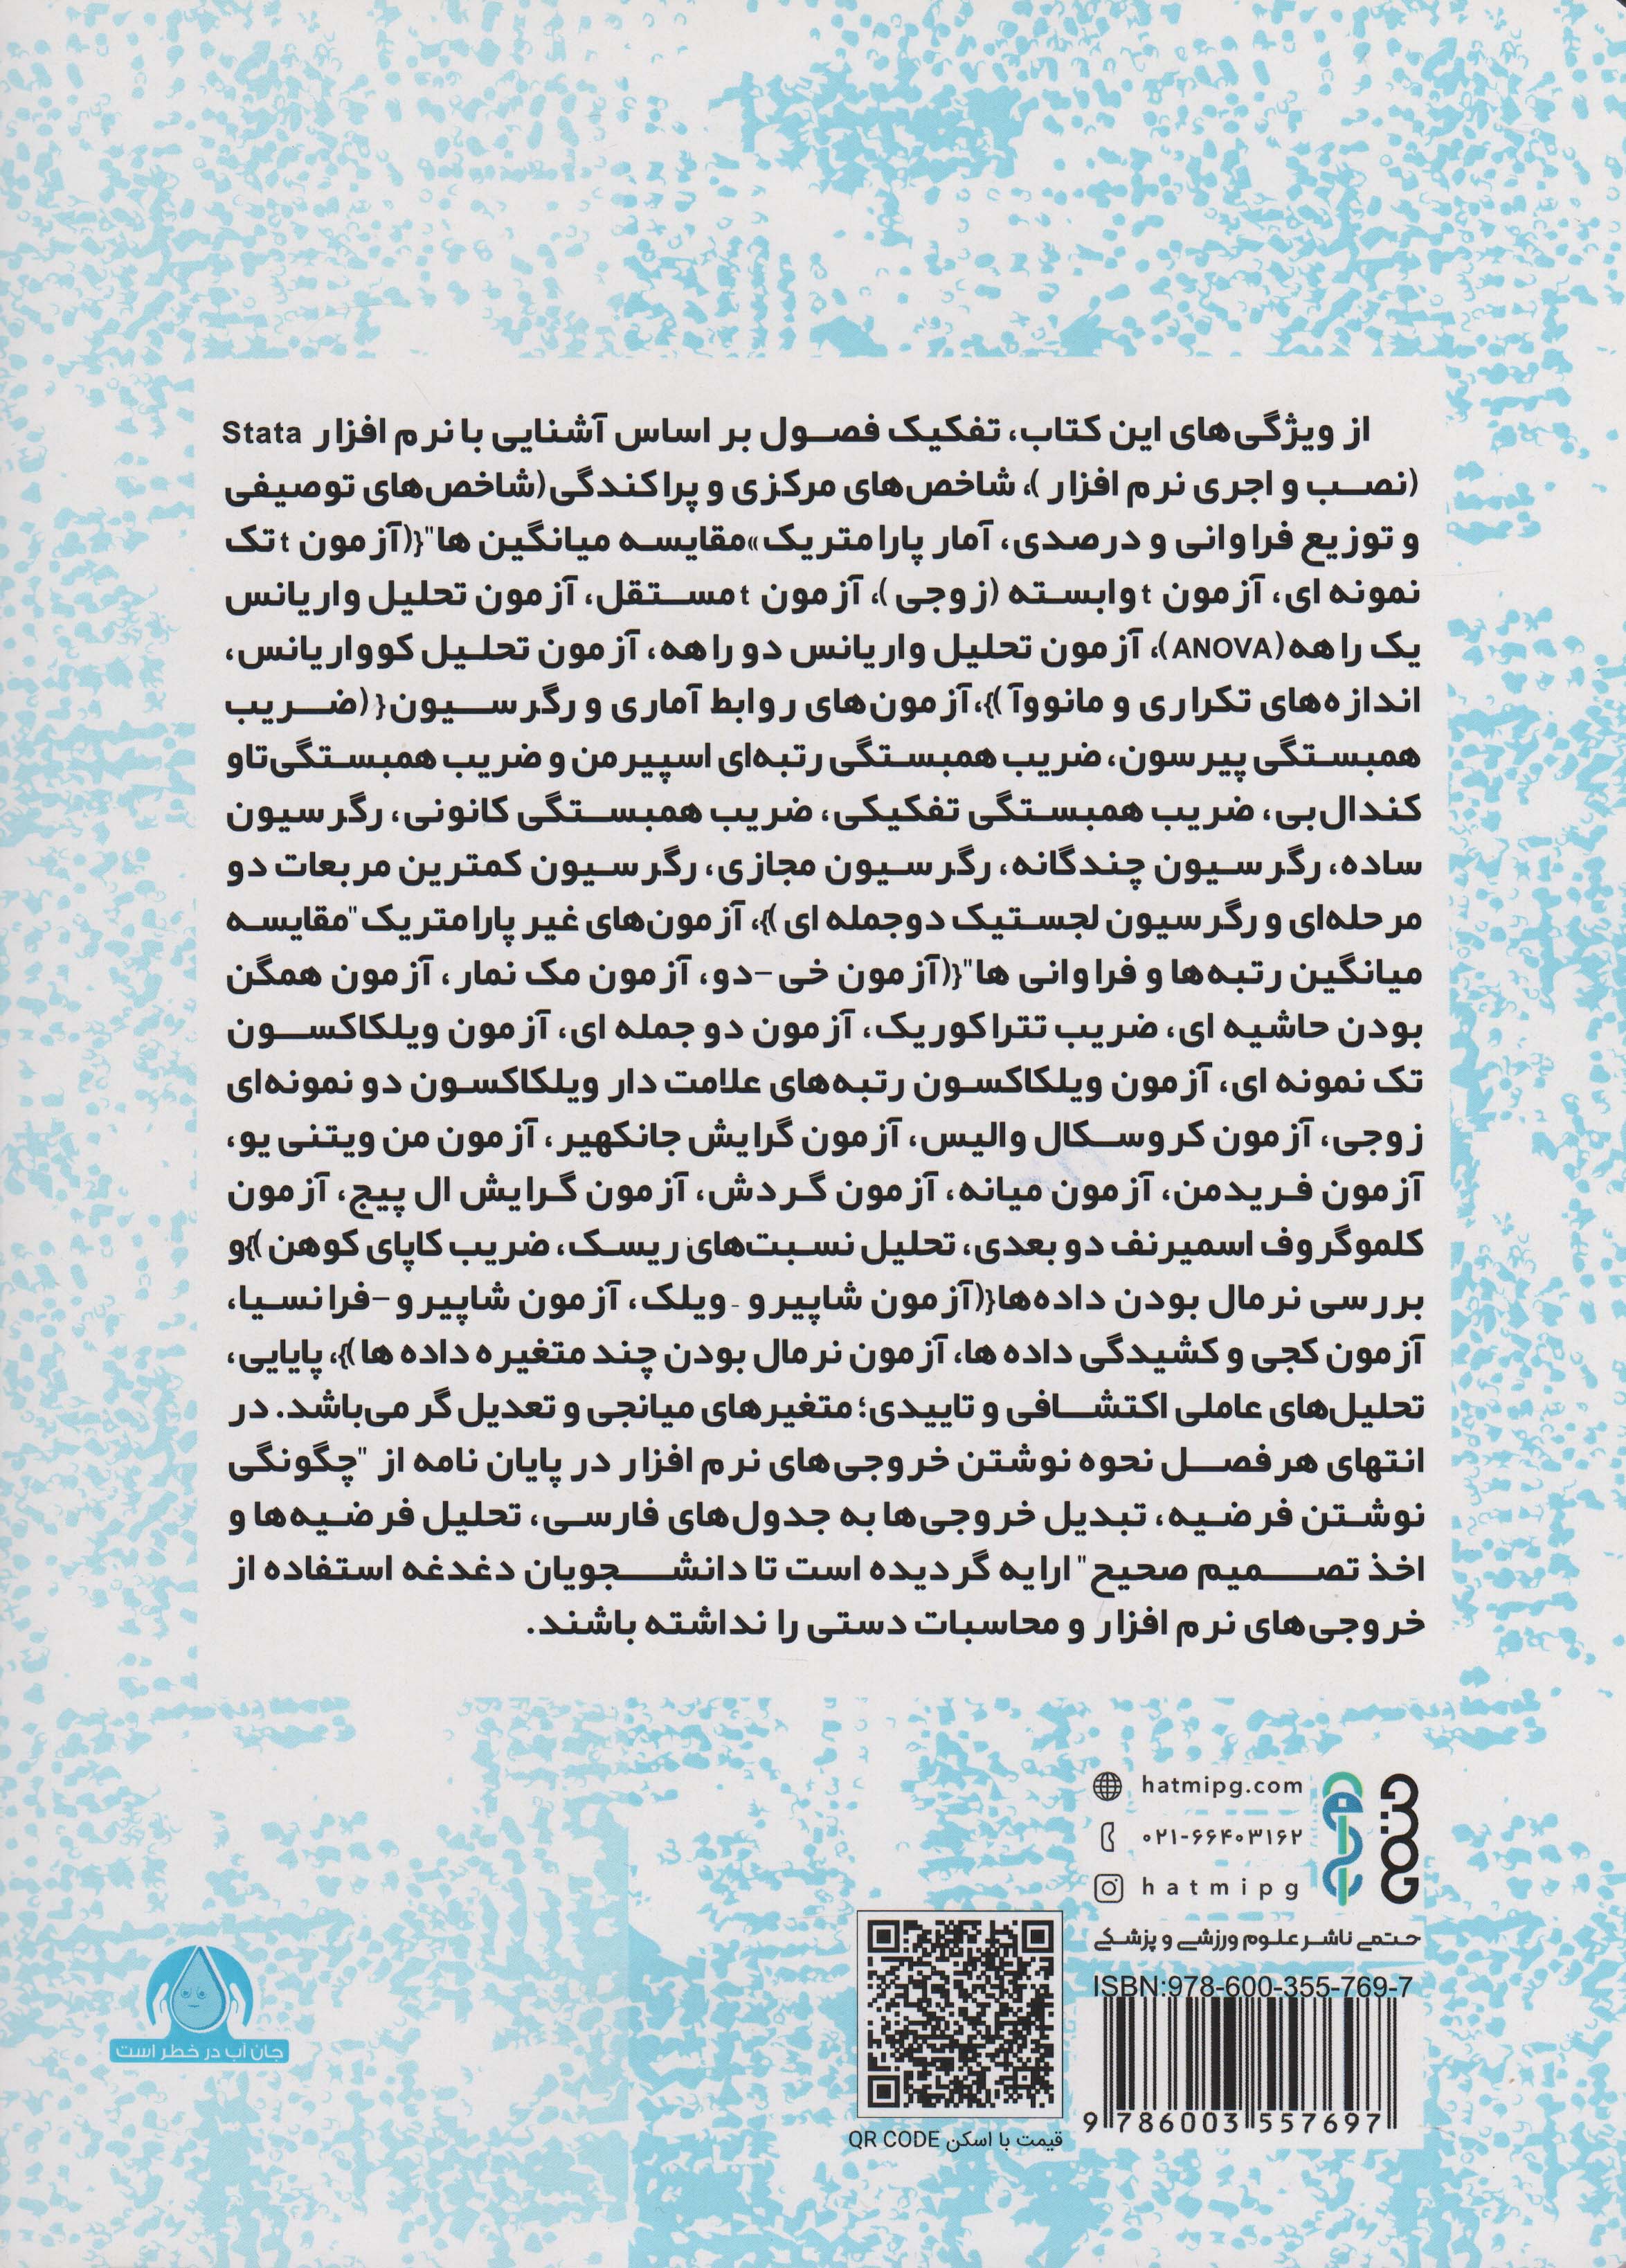 از ویژگی‌های این کتاب، تفکیک فصول بر اساس آشنایی با نرم افزار Stata
(نصب و اجری نرم افزار )، شاخص‌های مرکزی و پراکندگی(شاخص‌های توصیفی
و توزیع فراوانی و درصدی، آمار پارامتریک»مقایسه میانگین ها"{(آزمون t تک
نمونه ای، آزمون t وابسته (زوجی )، آزمون t مستقل، آزمون تحلیل واریانس
یک راهه(ANOVA)، آزمون تحلیل واریانس دو راهه، آزمون تحلیل کوواریانس،
اندازه‌های تکراری و مانووآ )}،آزمون‌های روابط آماری و رگرسیون{ (ضریب
همبستگی پیرسون، ضریب همبستگی رتبه‌ای اسپیرمن و ضریب همبستگی‌تاو
کندال‌بی، ضریب همبستگی تفکیکی، ضریب همبستگی کانونی، رگرسیون
ساده، رگرسیون چندگانه، رگرسیون مجازی، رگرسیون کمترین مربعات دو
مرحله‌ای و رگرسیون لجستیک دوجمله ای )}، آزمون‌های غیر پارامتریک"مقایسه
میانگین رتبه‌ها و فراوانی ها"{(آزمون خی-دو، آزمون مک نمار، آزمون همگن
بودن حاشیه ای، ضریب تتراکوریک، آزمون دو جمله ای، آزمون ویلکاکسون
تک نمونه ای، آزمون ویلکاکسون رتبه‌های علامت دار ویلکاکسون دو نمونه‌ای
زوجی، آزمون کروسکال والیس، آزمون گرایش جانکهیر، آزمون من ویتنی یو،
آزمون فریدمن، آزمون میانه، آزمون گردش، آزمون گرایش ال پیج، آزمون
کلموگروف اسمیرنف دو بعدی، تحلیل نسبت‌های ریسک، ضریب کاپای کوهن )}و
بررسی نرمال بودن داده‌ها{(آزمون شاپیرو - ویلک، آزمون شاپیرو -فرانسیا،
آزمون کجی و کشیدگی داده ها، آزمون نرمال بودن چند متغیره داده ها )}، پایایی،
تحلیل‌های عاملی اکتشافی و تاییدی؛ متغیرهای میانجی و تعدیل گر می‌باشد. در
انتهای هر فصل نحوه نوشتن خروجی‌های نرم افزار در پایان نامه از "چگونگی
نوشتن فرضیه، تبدیل خروجی‌ها به جدول‌های فارسی، تحلیل فرضیه‌ها و
اخذ تصمیم صحیح" ارایه گردیده است تا دانشجویان دغدغه استفاده از
خروجی‌های نرم افزار و محاسبات دستی را نداشته باشند.
حتمی
hatmipg.com
۰۲۱-۶۶۴۰۳۱۶۲
hatmipg
حتمی ناشر علوم ورزشی و پزشکی
ISBN:978-600-355-769-7
9 786003 557697
قیمت با اسکن QR CODE
جان آب در خطر است